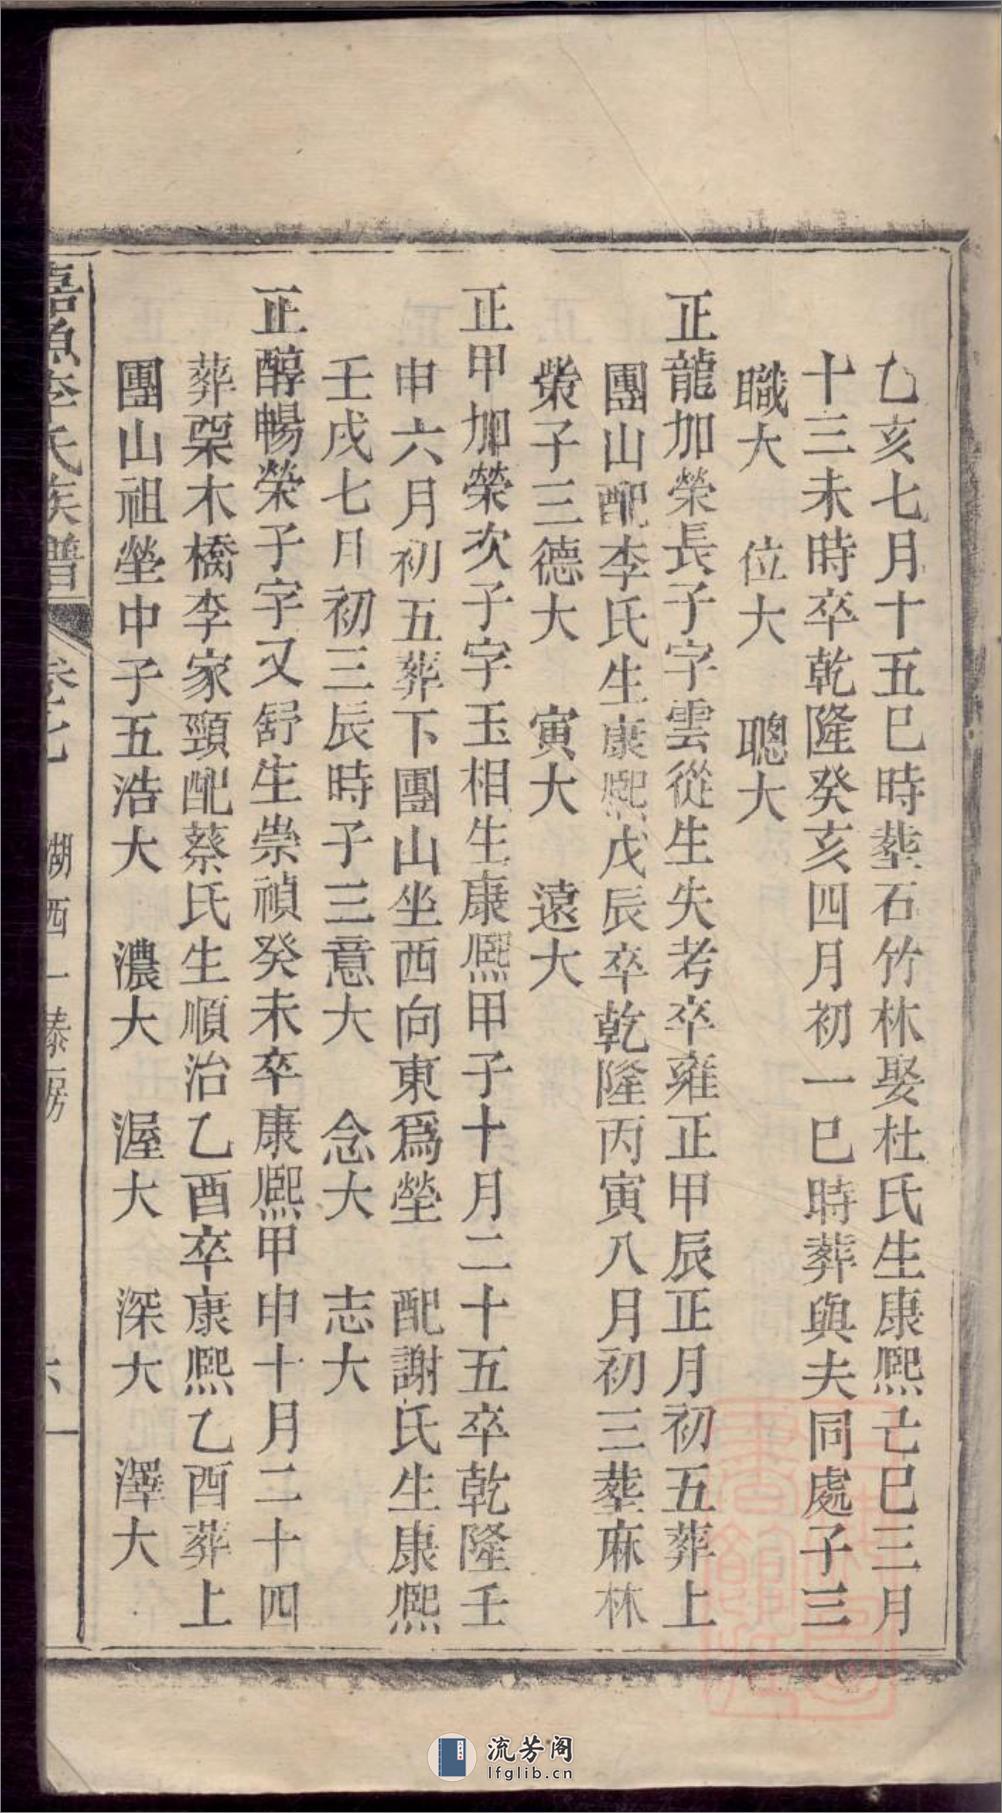 乙亥七月十五巳時塟石竹林娶杜氏生康熙己巳三月
十三未時卒乾隆癸亥四月初一巳時葬與夫同處子三
職大　位大　聰大
正龍加榮長子字雲從生失考卒雍正甲辰正月初五葬上
團山配李氏生康熙戊辰卒乾隆丙寅八月初三塟麻林
榮子三德大　寅大　遠大
正甲加榮次子字玉相生康熙甲子十月二十五卒乾隆壬
申六月初五葬下團山坐西向東爲塋　配謝氏生康熙
壬戌七月初三辰時子三意大　念大　志大
正醇暢榮子字又舒生崇禎癸未卒康熙甲申十月二十四
葬栗木橋李家頸配蔡氏生順治乙酉卒康熙乙酉葬上
團山祖塋中子五浩大　濃大　渥大　深大　澤大
嘉魚李氏族譜　卷七　湖西一
流芳阁
lfglib.cn